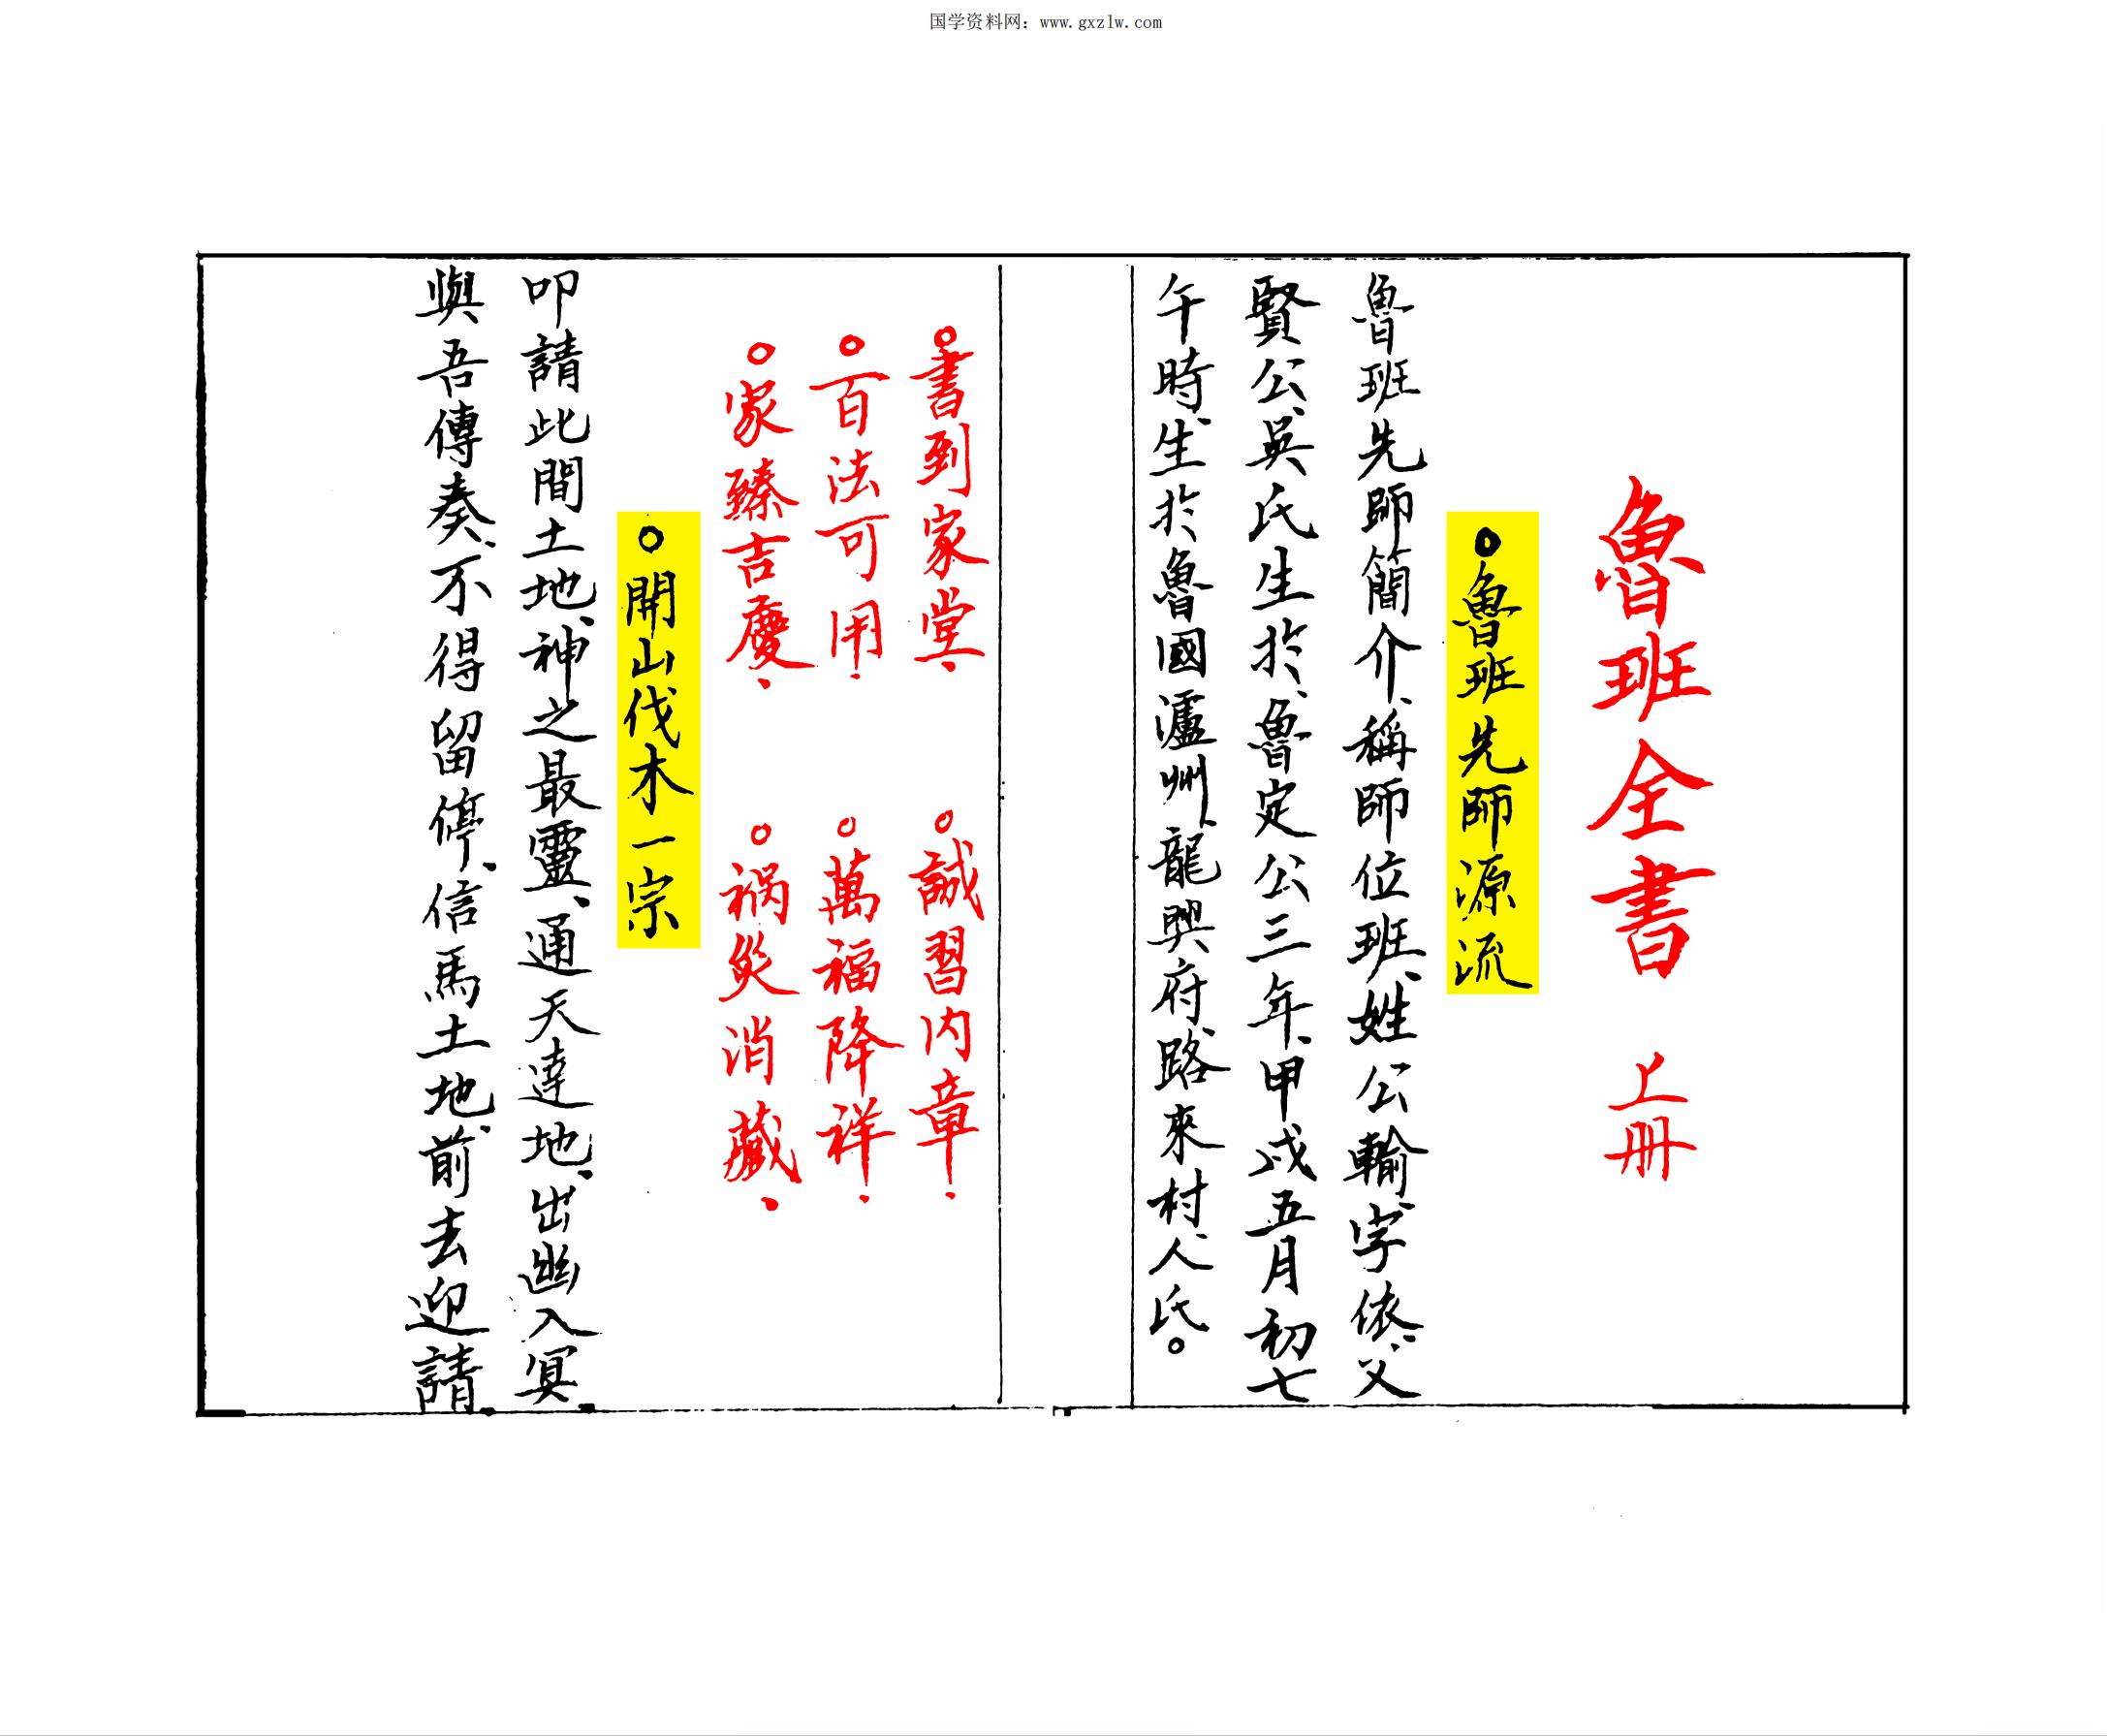 国学资料网：www.gxzlw.com
魯班全書 上册
○魯班先師源流
魯班先師簡介、稱師位班、姓公輸、字依、父
賢公、吳氏生於、魯定公三年、甲戌五月初七
午時、生於魯國瀘州、龍興府、路來村、人氏。
○書到家堂. ○誠習内章.
○百法可用. ○萬福降祥.
○家臻吉慶. ○禍災消藏.
○開山伐木一宗
叩請此間土地、神之最靈、通天達地、出幽入冥、
與吾傳奏、不得留停、信馬土地、前去迎請、